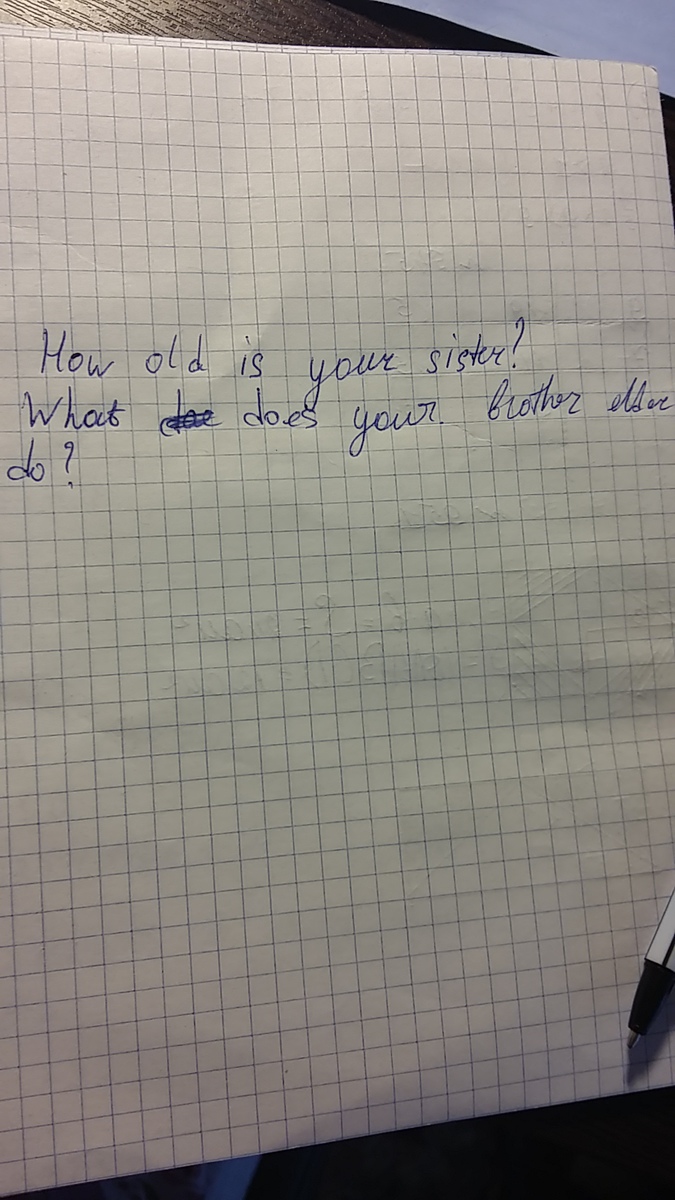 How old is your sister?
What does your brother
do?